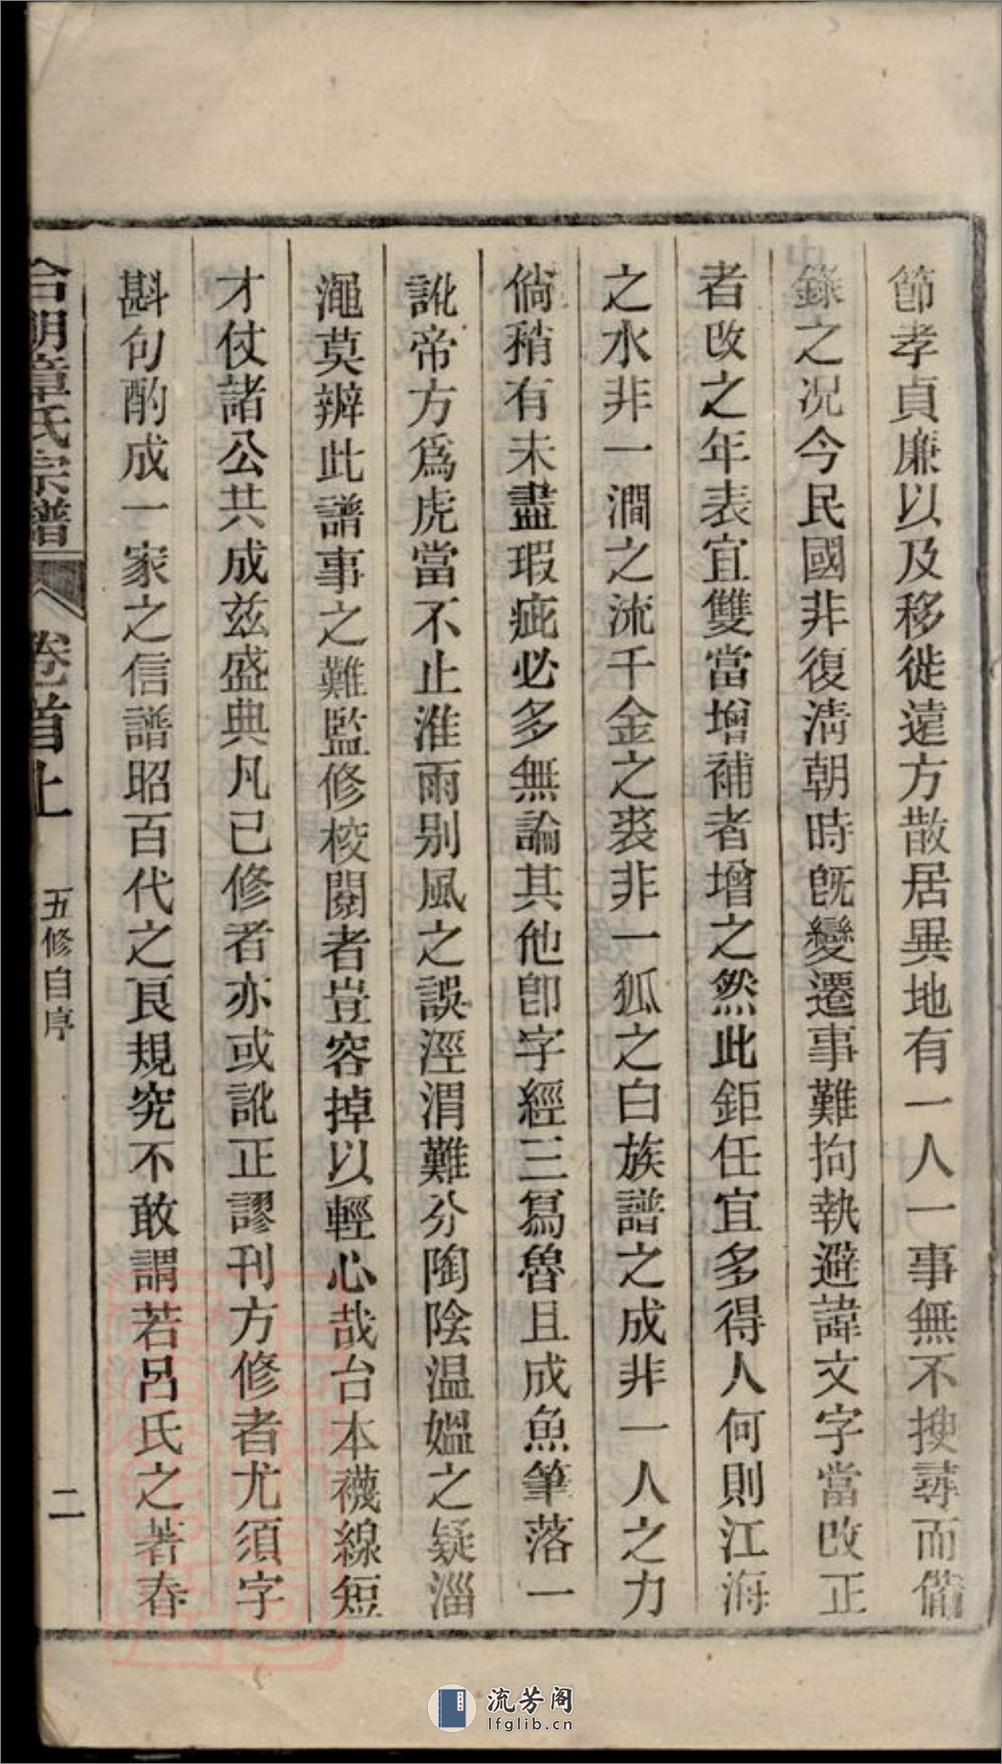 節孝貞廉以及移徙遠方散居異地有一人一事無不搜尋而備
錄之况今民國非復淸朝時旣變遷事難拘執避諱文字當改正
者改之年表宜雙當增補者增之然此鉅任宜多得人何則江海
之水非一澗之流千金之裘非一狐之白族譜之成非一人之力
倘稍有未盡瑕疵必多無論其他卽字經三寫魯且成魚筆落一
訛帝方爲虎當不止淮雨别風之誤涇渭難分陶陰温媼之疑淄
澠莫辨此譜事之難監修校閱者豈容掉以輕心哉台本襪線短
才仗諸公共成茲盛典凡已修者亦或訛正謬刊方修者尤須字
斟句酌成一家之信譜昭百代之良規究不敢謂若呂氏之著春
合明章氏宗譜 卷首上 五修自序 二
流芳阁
lfglib.cn